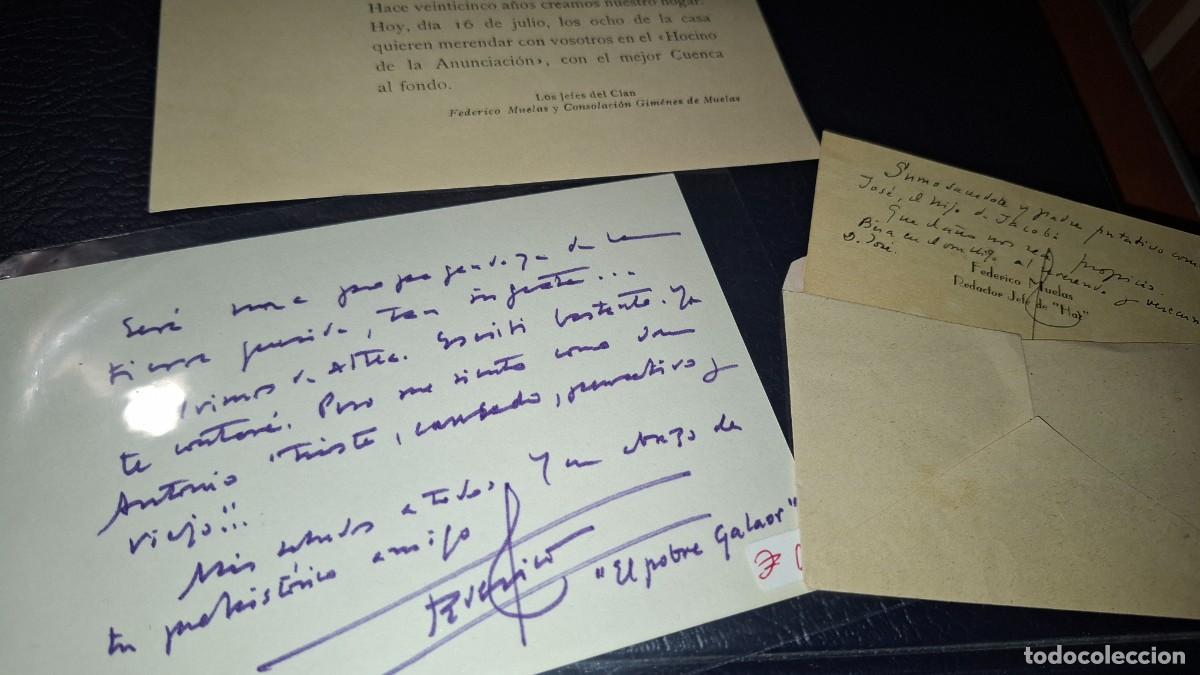 Hace veinticinco años creamos nuestro hogar.
Hoy, día 16 de julio, los ocho de la casa
quieren merendar con vosotros en el «Hocino
de la Anunciación», con el mejor Cuenca
al fondo.
Los Jefes del Clan
Federico Muelas y Consolación Giménes de Muelas
Sumo sacerdote y padre putativo como
José, el hijo de Jacob:
Que el año nos sea propicio.
D. José.
Federico Muelas
Redactor Jefe de "Hoy"
Será una propaganda de la
tierra querida, tan ingrata...
Vinimos de Altea. Escribí bastante. Ya
te contaré. Pero me siento como don
Antonio "triste, cansado, pensativo y
viejo"!!
Mis saludos a todos y un abrazo de
tu prehistórico amigo
Federico
"El pobre Galaor"
todocoleccion